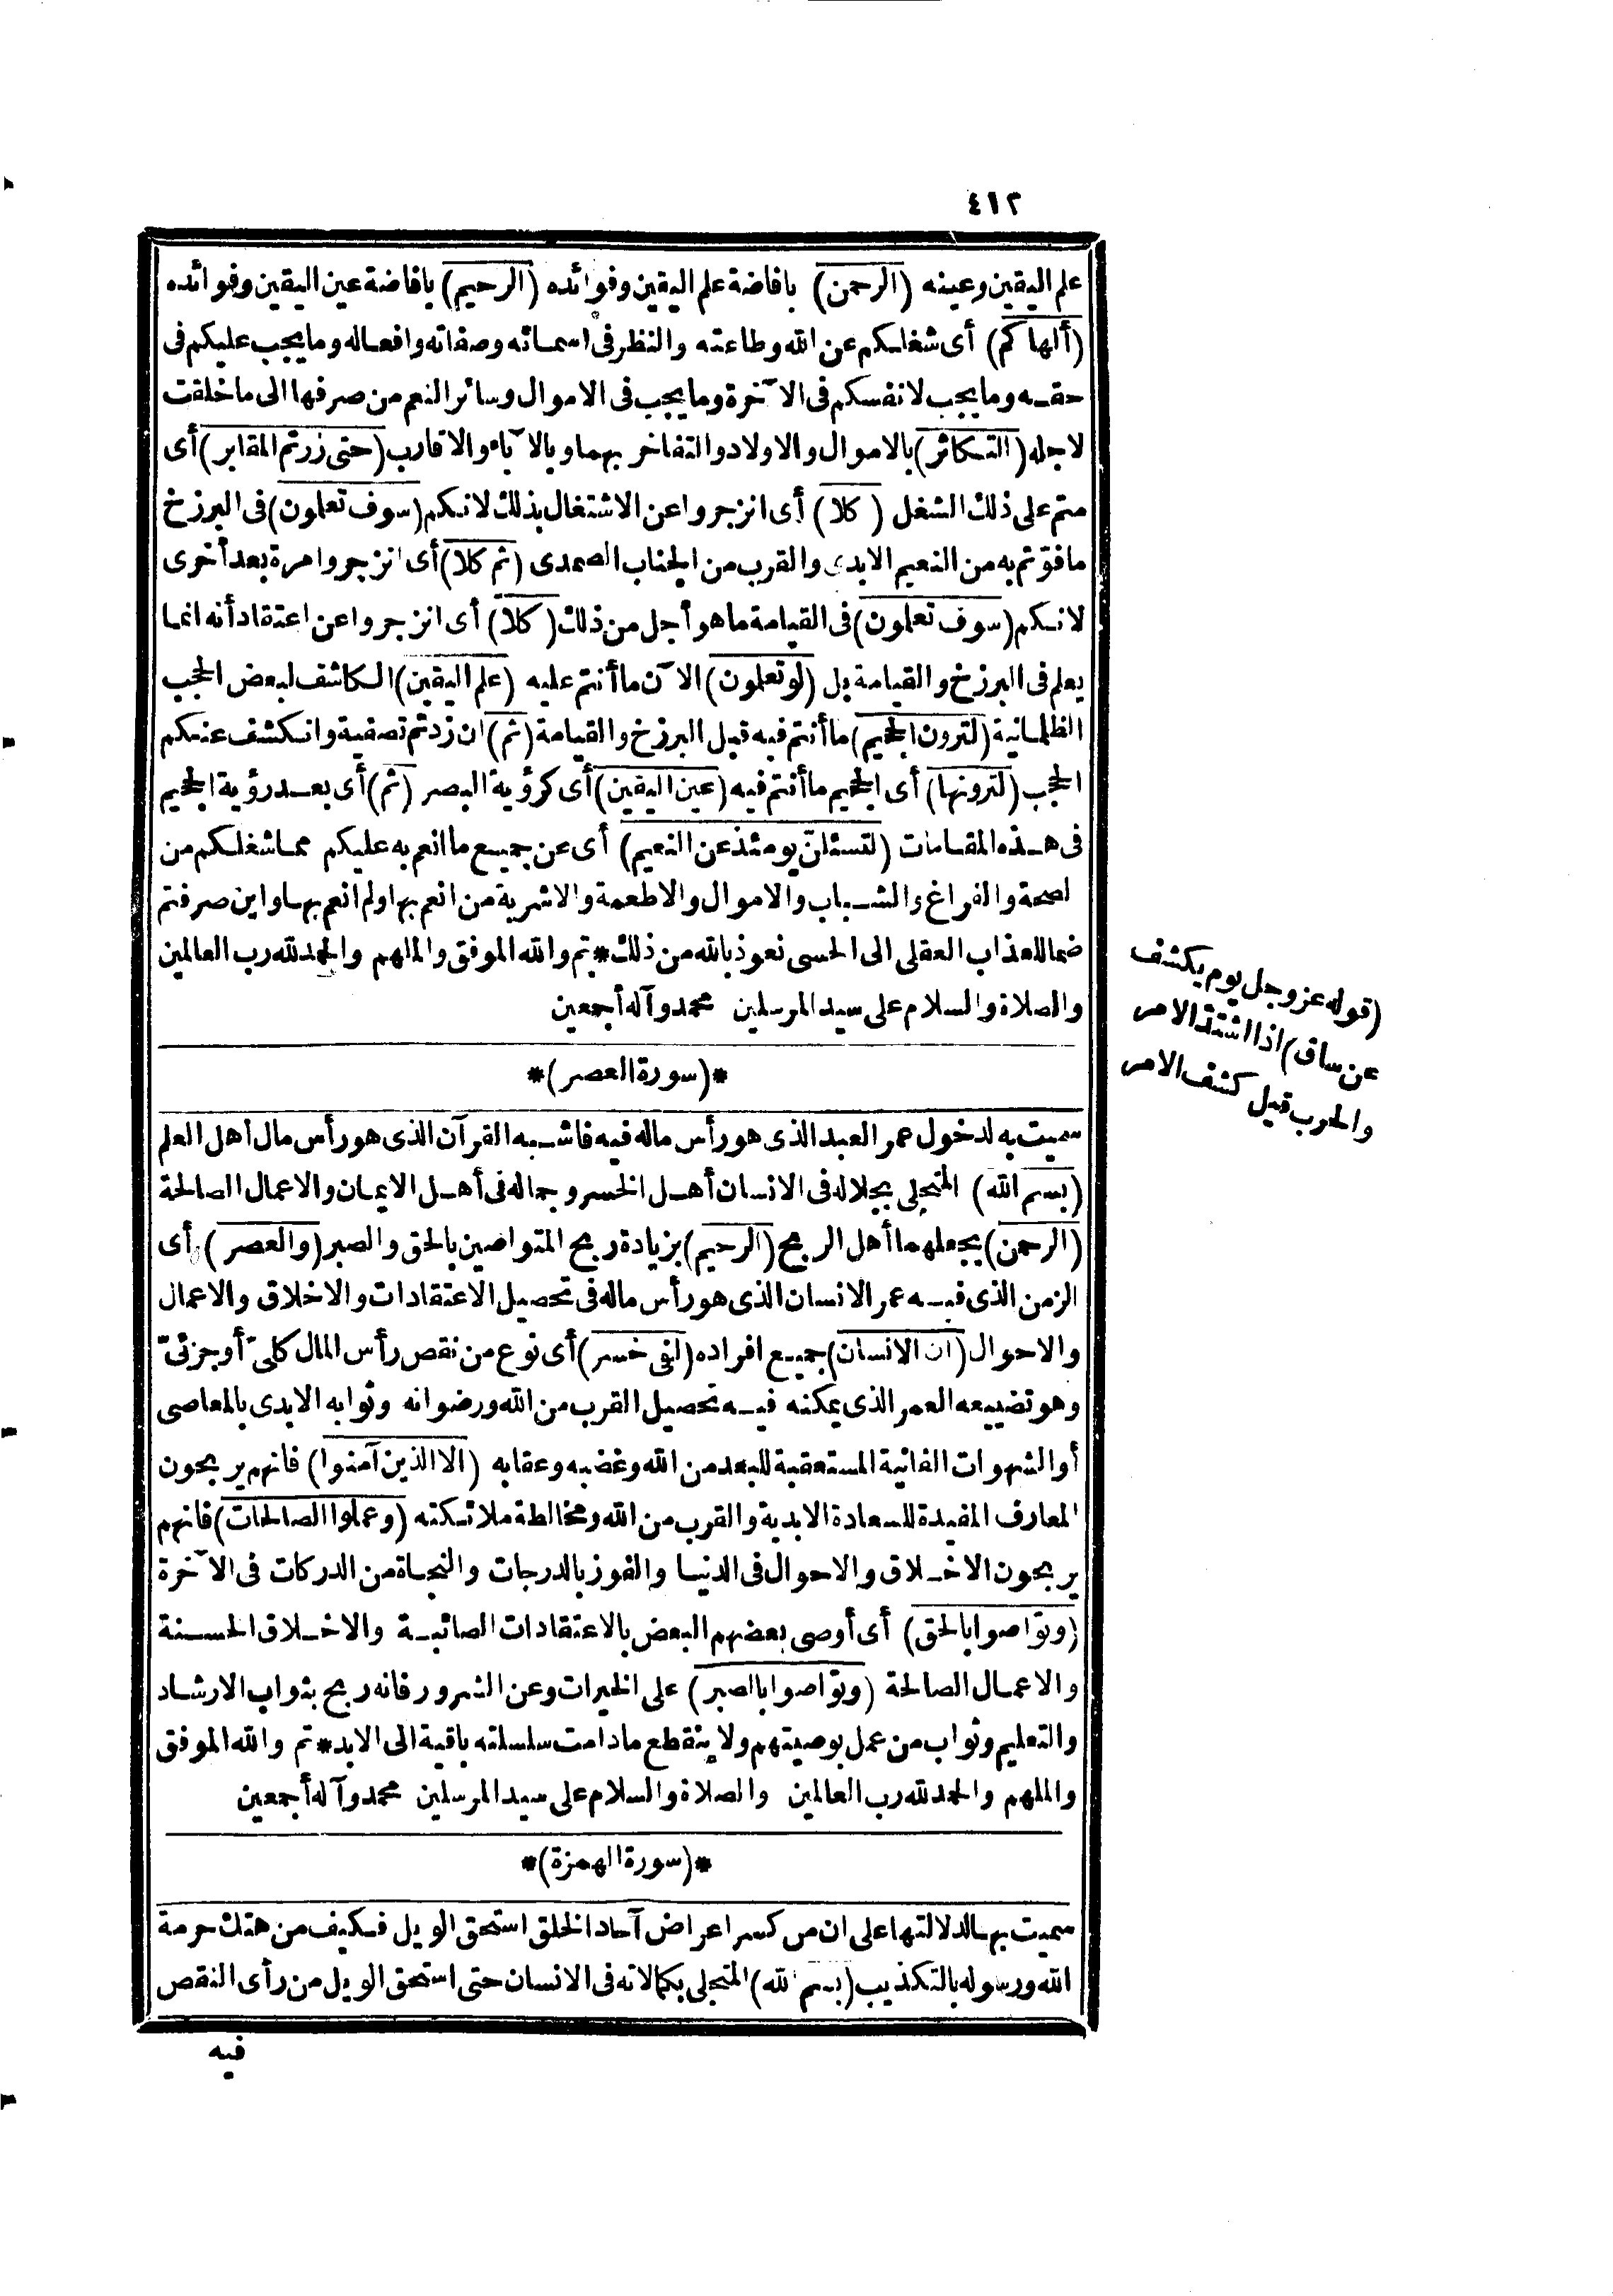 ٤١٢
علم اليقين وعينه (الرحمن) بافاضة علم اليقين وفوائده (الرحيم) بافاضة عين اليقين وفوائده
(ألهاكم) أى شغلكم عن الله وطاعته والنظر فى اسمائه وصفاته وافعاله وما يجب عليكم فى
حقه وما يجب لانفسكم فى الآخرة وما يجب فى الاموال وسائر النعم من صرفها الى ما خلقت
لاجله (التكاثر) بالاموال والاولاد والتفاخر بهما وبالآباء والاقارب (حتى زرتم المقابر) أى
متم على ذلك الشغل (كلا) أى انزجروا عن الاشتغال بذلك لانكم (سوف تعلمون) فى البرزخ
ما فوتم به من النعيم الابدى والقرب من الجناب الصمدى (ثم كلا) أى انزجروا مرة بعد أخرى
لانكم (سوف تعلمون) فى القيامة ما هو أجل من ذلك (كلا) أى انزجروا عن اعتقاد أنه انما
يعلم فى البرزخ والقيامة بل (لو تعلمون) الآن ما أنتم عليه (علم اليقين) الكاشف لبعض الحجب
الظلمانية (لترون الجحيم) ما أنتم فيه قبل البرزخ والقيامة (ثم) ان زدتم تصفية وانكشف عنكم
الحجب (لترونها) أى الجحيم ما أنتم فيه (عين اليقين) أى كرؤية البصر (ثم) أى بعد رؤية الجحيم
فى هذه المقامات (لتسئلن يومئذ عن النعيم) أى عن جميع ما انعم به عليكم مما شغلكم من
لصحة والفراغ والشباب والاموال والاطعمة والاشربة من انعم بها ولم انعم بها واين صرفتم
ضما للعذاب العقلى الى الحسى نعوذ بالله من ذلك * تم والله الموفق والملهم والحمد لله رب العالمين
والصلاة والسلام على سيد المرسلين محمد وآله أجمعين
*(سورة العصر)*
سميت به لدخول عمر العبد الذى هو رأس ماله فيه فاشبه القرآن الذى هو رأس مال أهل العلم
(بسم الله) المتجلى بجلاله فى الانسان أهل الخسر وجماله فى أهل الايمان والاعمال الصالحة
(الرحمن) بجعلهما أهل الربح (الرحيم) بزيادة ربح المتواصين بالحق والصبر (والعصر) أى
الزمن الذى فيه عمر الانسان الذى هو رأس ماله فى تحصيل الاعتقادات والاخلاق والاعمال
والاحوال (ان الانسان) جميع افراده (لفى خسر) أى نوع من نقص رأس المال كلىّ أو جزئىّ
وهو تضييعه العمر الذى يمكنه فيه تحصيل القرب من الله ورضوانه وثوابه الابدى بالمعاصى
أو الشهوات الفانية المستعقبة للبعد من الله وغضبه وعقابه (الا الذين آمنوا) فانهم يربحون
المعارف المفيدة للسعادة الابدية والقرب من الله ومخالطة ملائكته (وعملوا الصالحات) فانهم
يربحون الاخلاق والاحوال فى الدنيا والفوز بالدرجات والنجاة من الدركات فى الآخرة
(وتواصوا بالحق) أى أوصى بعضهم البعض بالاعتقادات الصائبة والاخلاق الحسنة
والاعمال الصالحة (وتواصوا بالصبر) على الخيرات وعن الشرور فانه ربح بثواب الارشاد
والتعليم وثواب من عمل بوصيتهم ولا ينقطع مادامت سلسلته باقية الى الابد * تم والله الموفق
والملهم والحمد لله رب العالمين والصلاة والسلام على سيد المرسلين محمد وآله أجمعين
*(سورة الهمزة)*
سميت بها لدلالتها على ان من كسر اعراض آحاد الخلق استحق الويل فكيف من هتك حرمة
الله ورسوله بالتكذيب (بسم الله) المتجلى بكمالاته فى الانسان حتى استحق الويل من رأى النقص
فيه
(قوله عز وجل يوم يكشف
عن ساق) اذا اشتد الامر
والحرب قيل كشف الامر